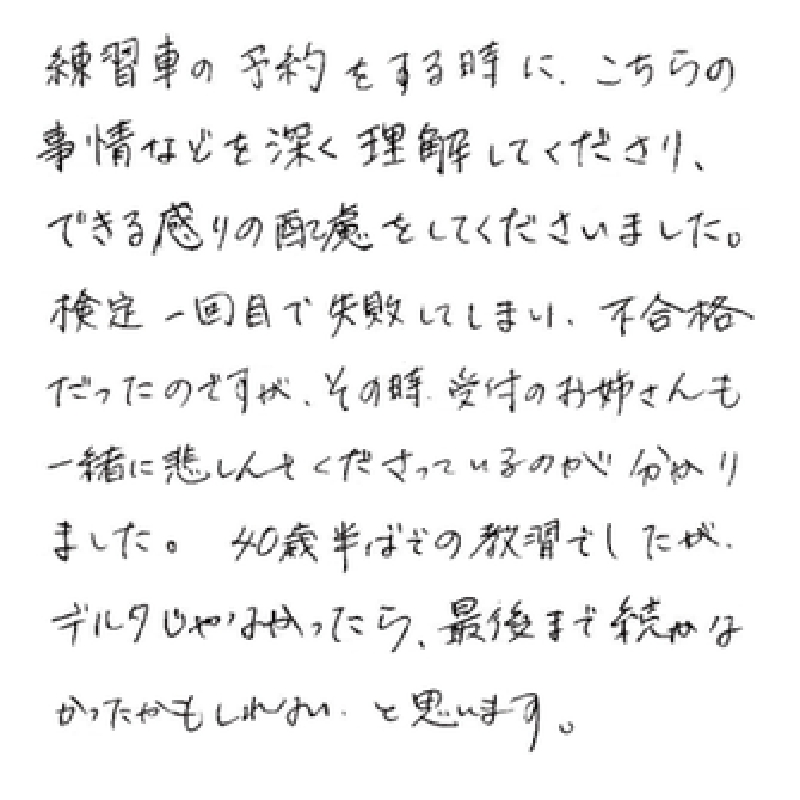 練習車の予約をする時に、こちらの
事情などを深く理解してくださり、
できる感りの配慮をしてくださいました。
検定一回目で失敗してしまい、不合格
だったのですが、その時、受付のお姉さんも
一緒に悲しんでくださっているのが分かり
ました。 40歳半ばでの教習でしたが、
デルタじゃなかったら、最後まで続かな
かったかもしれない、と思います。